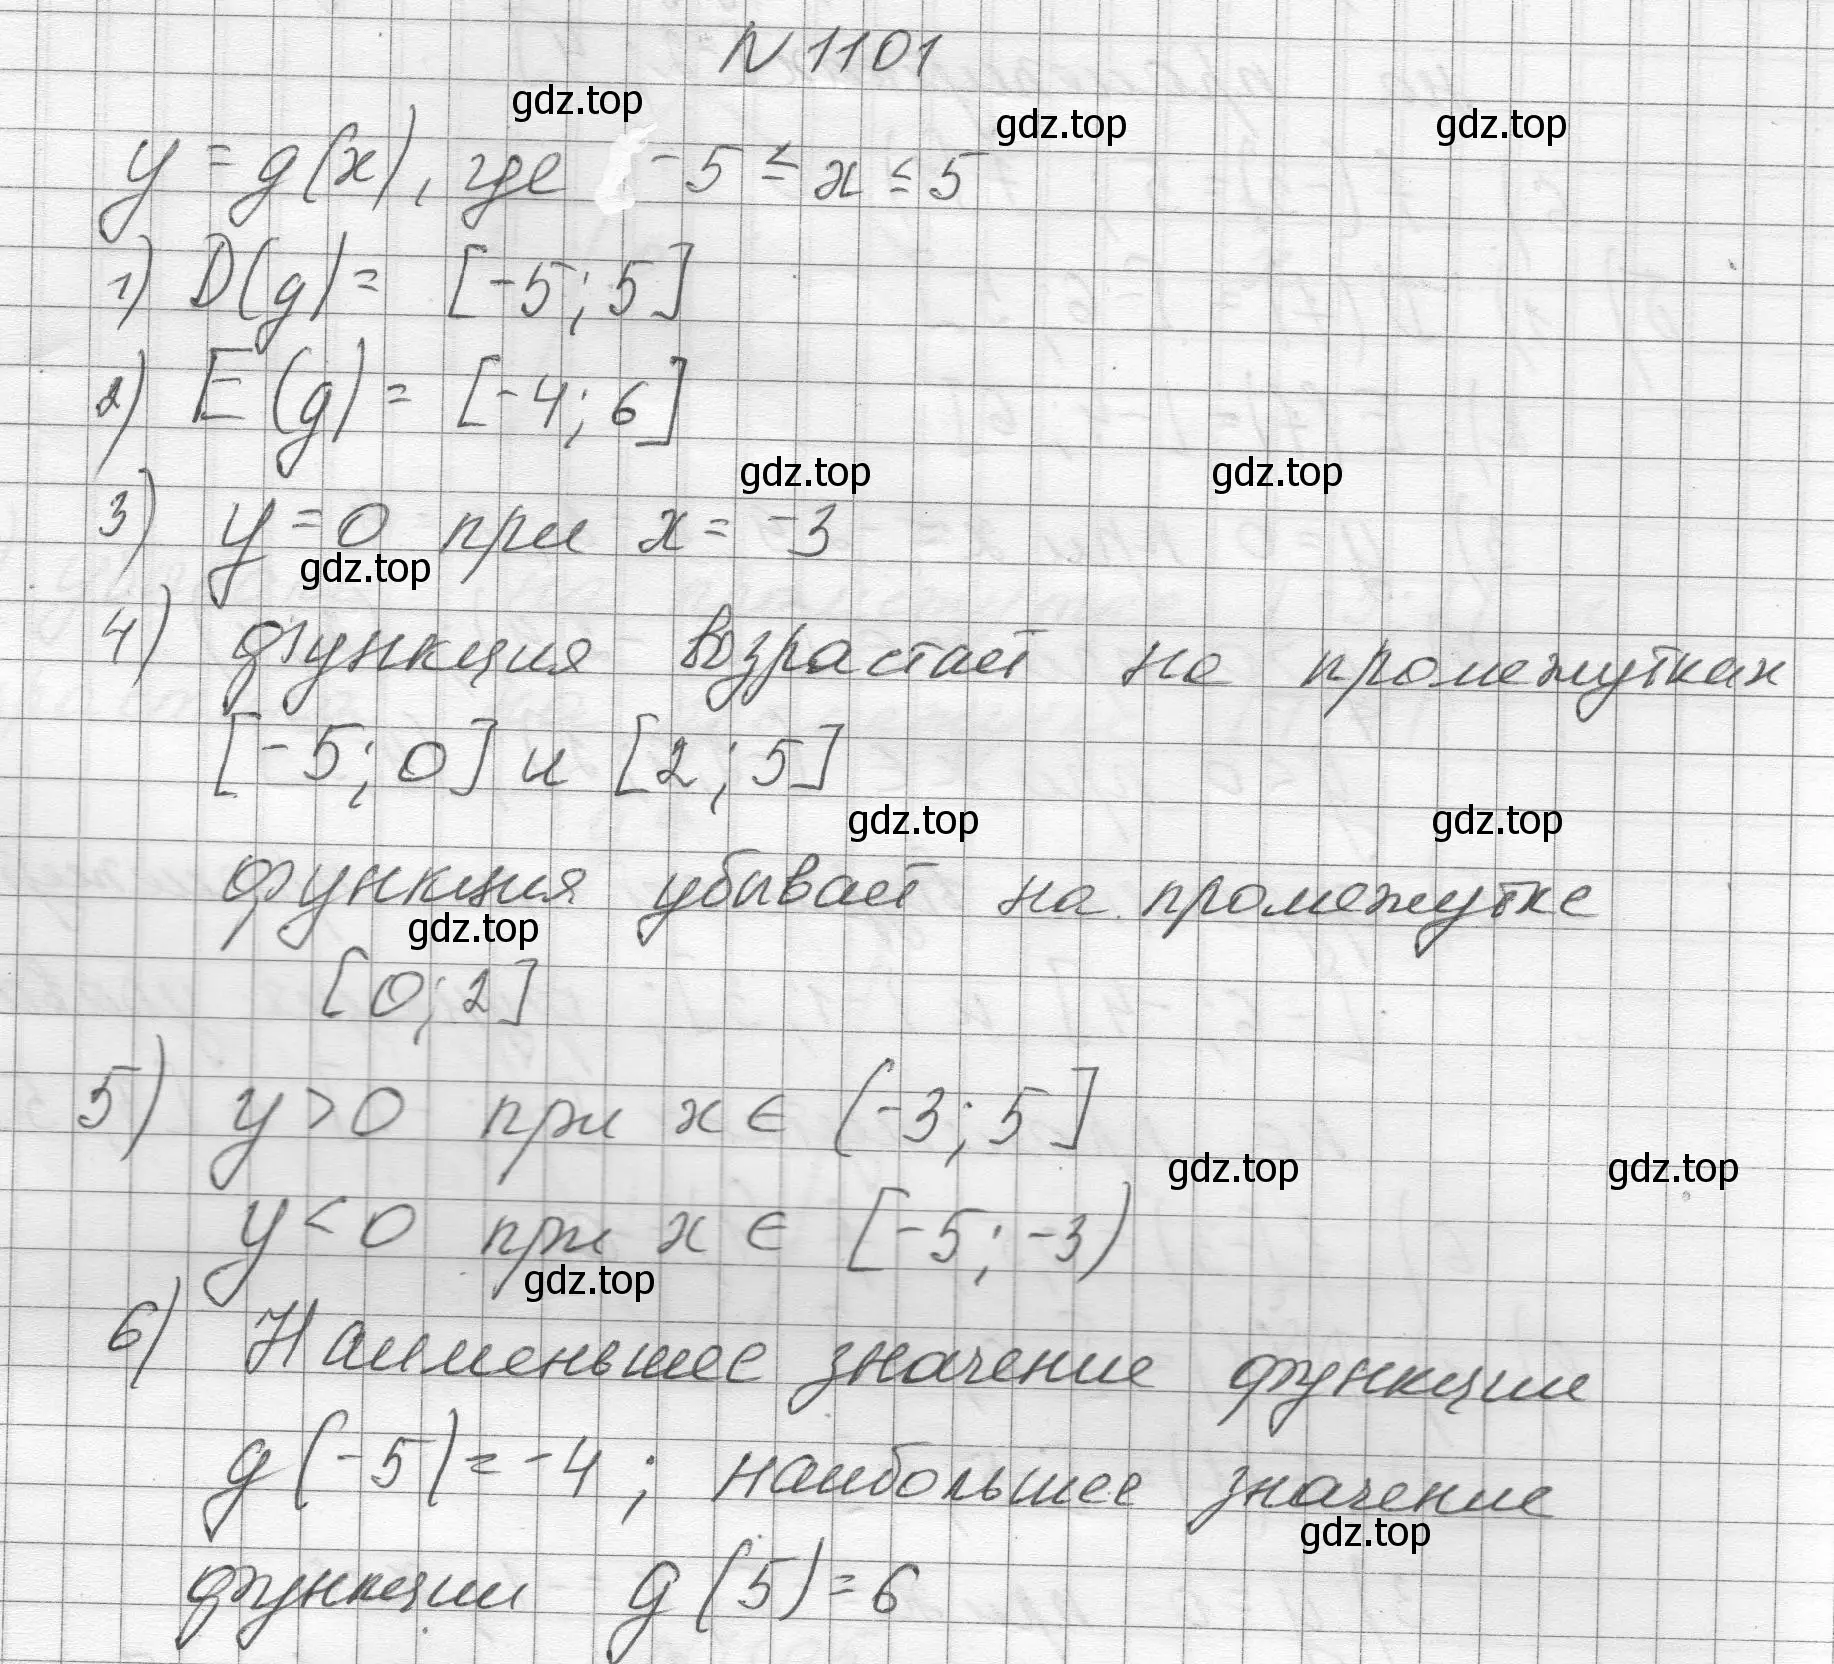 N 1101
gdz.top
gdz.top
gdz.top
y = g(x), где -5 ≤ x ≤ 5
1) D(g) = [-5; 5]
2) E(g) = [-4; 6]
gdz.top
gdz.top
3) y = 0 при x = -3
gdz.top
4) функция возрастает на промежутках
[-5; 0] и [2; 5]
gdz.top
gdz.top
функция убывает на промежутке
gdz.top
[0; 2]
5) y > 0 при x ∈ (-3; 5]
gdz.top
gdz.top
y < 0 при x ∈ [-5; -3)
gdz.top
6) Наименьшее значение функции
g(-5) = -4; наибольшее значение
gdz.top
функции g(5) = 6